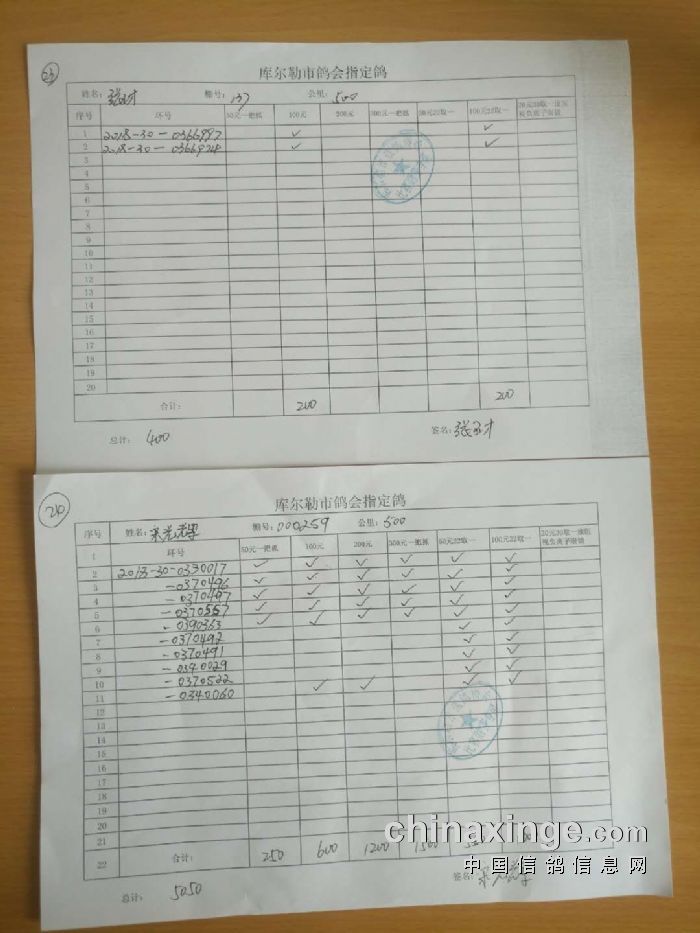 23
库尔勒市鸽会指定鸽
姓名: 棚号: 137 公里: 500
序号 环号 50元一把抓 100元 200元 300元一把抓 50元22取一 100元22取一
1 2018-30-0366997 ✓ ✓
2 2018-30-0366974 ✓ ✓
3
4
5
6
7
8
9
10
11
12
13
14
15
16
17
18
19
20
合计: 200 200
总计: 400 签名:
20
库尔勒市鸽会指定鸽
序号 姓名: 棚号: 000259 公里: 500
1 环号 50元一把抓 100元 200元 300元一把抓 50元22取一 100元22取一
2 2018-30-0390017 ✓ ✓ ✓ ✓ ✓ ✓
3 -0370496 ✓ ✓ ✓ ✓ ✓ ✓
4 -0370497 ✓ ✓ ✓ ✓ ✓ ✓
5 -0370557 ✓ ✓ ✓ ✓ ✓ ✓
6 -0390363 ✓ ✓ ✓ ✓
7 -0370492 ✓ ✓
8 -0370491 ✓ ✓
9 -0340029 ✓ ✓
10 -0370522 ✓ ✓ ✓ ✓
11 -0340060
12
13
14
15
16
17
18
19
20
21
22 合计: 250 600 1200 1500
总计: 5050 签名:
chinaxinge.com
中国信鸽信息网